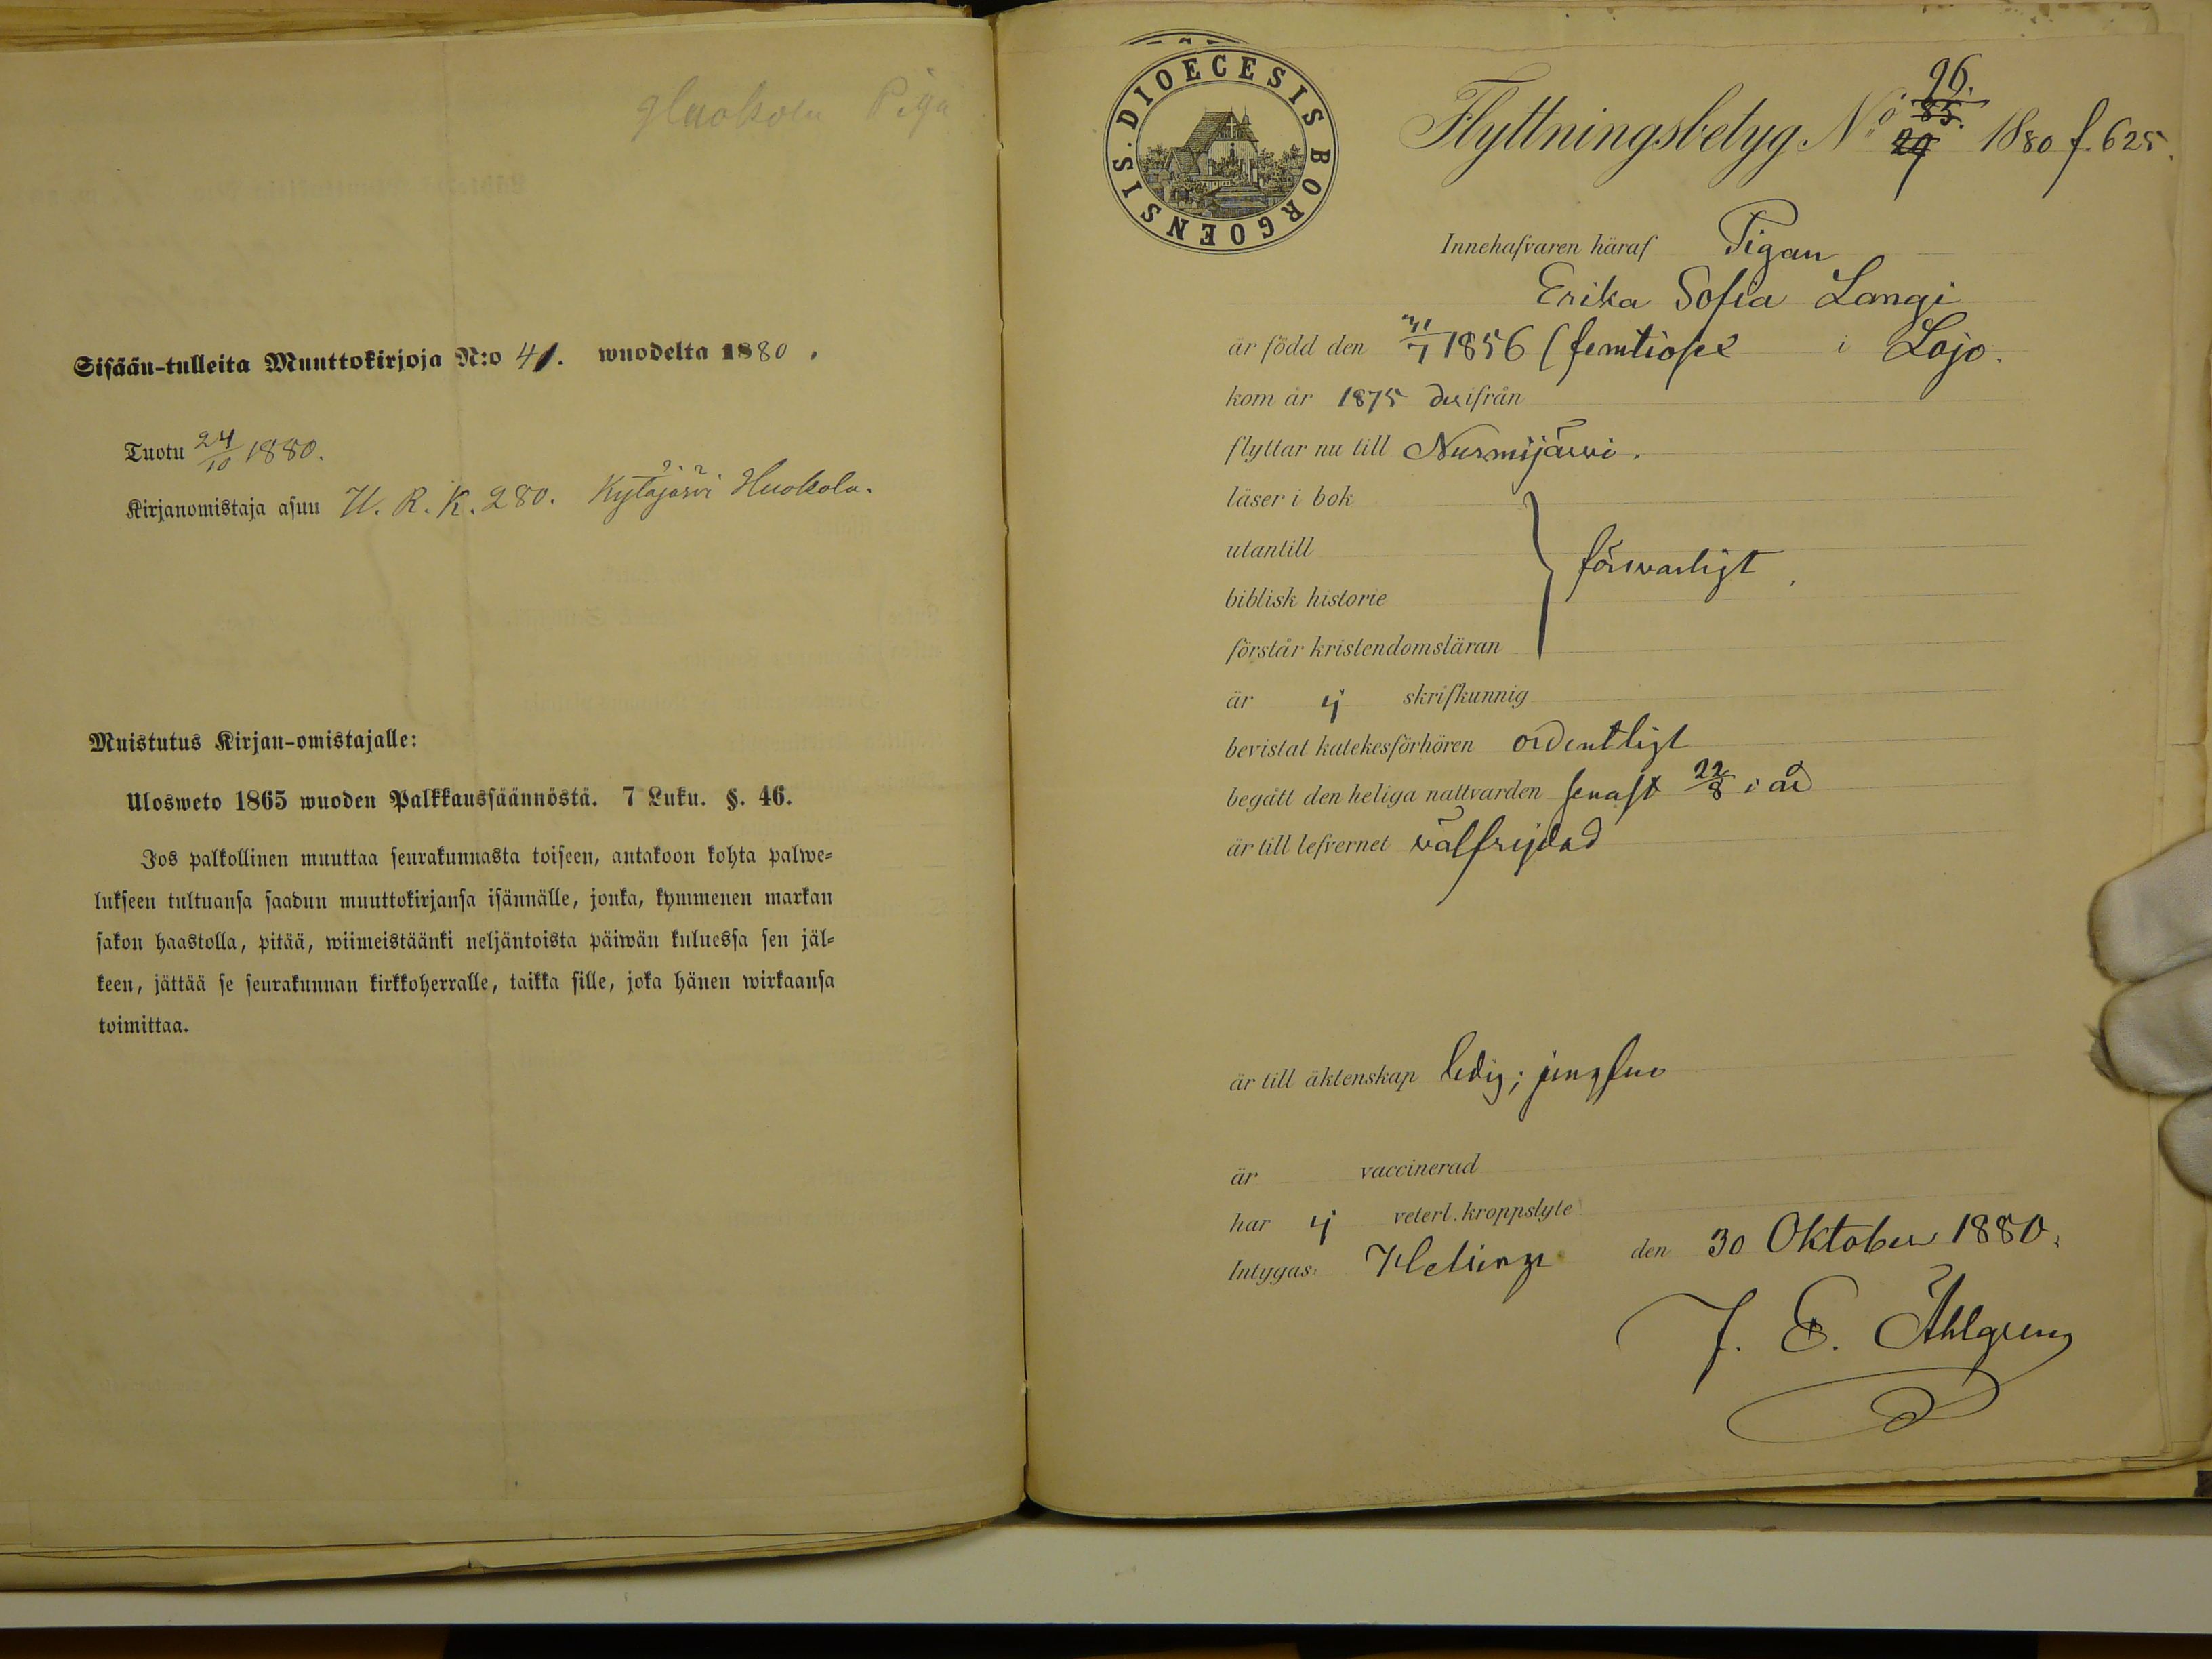 Huokola Piga
Sisään-tulleita Muuttokirjoja N:o 41. wuodelta 1880.
Tuotu 24/10 1880.
Kirjanomistaja asuu U. R. K. 280. Kytäjärvi Huokola.
Muistutus Kirjan-omistajalle:
Ulosweto 1865 wuoden Palkkaussäännöstä. 7 Luku. §. 46.
Jos palkollinen muuttaa seurakunnasta toiseen, antakoon kohta palwe=
lukseen tultuansa saadun muuttokirjansa isännälle, jonka, kymmenen markan
sakon haastolla, pitää, wiimeistäänki neljäntoista päiwän kuluessa sen jäl=
keen, jättää se seurakunnan kirkkoherralle, taikka sille, joka hänen wirkaansa
toimittaa.
DIOECESIS BORGOENSIS.
96.
85.
Flyttningsbetyg No 29 1880 f. 625.
Innehafvaren häraf Pigan
Erika Sofia Langi
är född den /7 1856 (femtiosex i Lojo.
kom år 1875 derifrån
flyttar nu till Nurmijärvi.
läser i bok
utantill
försvarligt
biblisk historie
förstår kristendomsläran
är ej skrifkunnig
bevistat katekesförhören ordentligt
begått den heliga nattvarden senast 22/8 i år
är till lefvernet välfrejdad
är till äktenskap ledig; jungfru
är vaccinerad
har ej veterl. kroppslyte
Intygas: Helsinge den 30 Oktober 1880.
J. E. Åhlgren